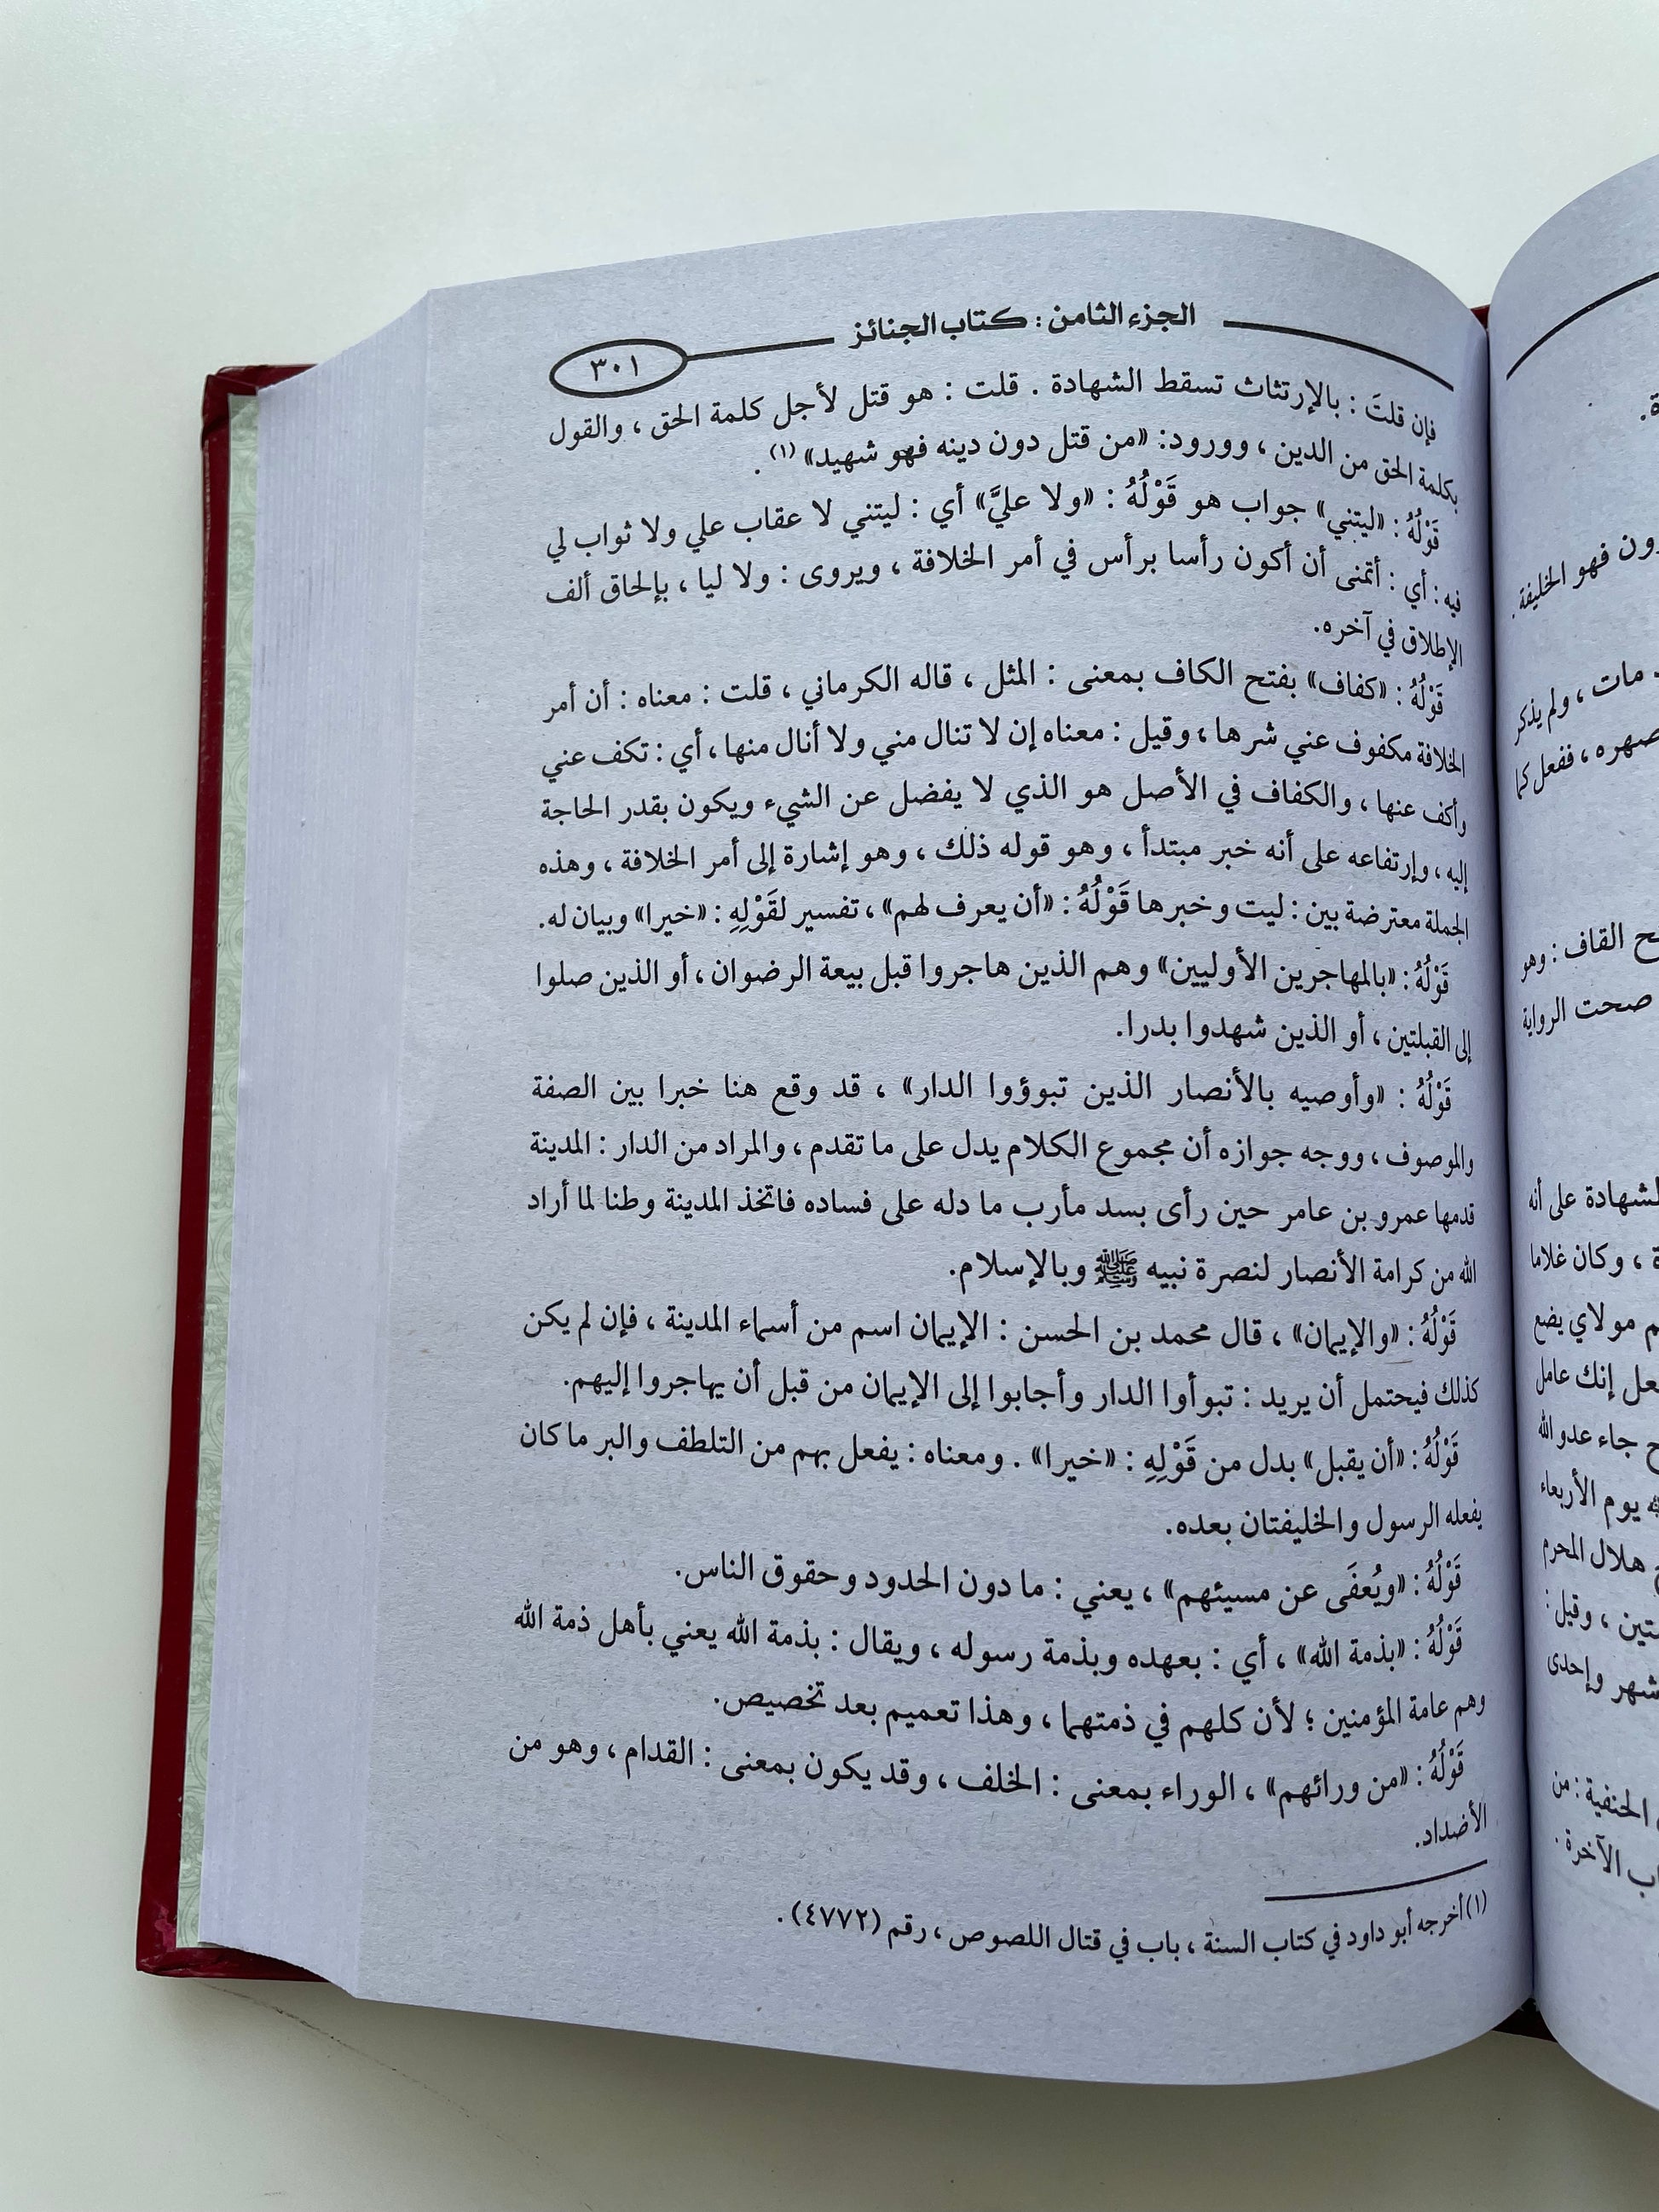 الجزء الثامن: كتاب الجنائز
٣٠١
فإن قلتَ : بالإرتثاث تسقط الشهادة . قلت : هو قتل لأجل كلمة الحق ، والقول
بكلمة الحق من الدين ، وورود: «من قتل دون دينه فهو شهيد» (١) .
قَوْلُهُ : «ليتني» جواب هو قَوْلُهُ : «ولا عليَّ» أي : ليتني لا عقاب علي ولا ثواب لي
فيه : أي : أتمنى أن أكون رأسا برأس في أمر الخلافة ، ويروى : ولا ليا ، بإلحاق ألف
الإطلاق في آخره.
قَوْلُهُ : «كفاف» بفتح الكاف بمعنى : المثل ، قاله الكرماني ، قلت : معناه : أن أمر
الخلافة مكفوف عني شرها ، وقيل : معناه إن لا تنال مني ولا أنال منها ، أي : تكف عني
وأكف عنها ، والكفاف في الأصل هو الذي لا يفضل عن الشيء ويكون بقدر الحاجة
إليه ، وإرتفاعه على أنه خبر مبتدأ ، وهو قوله ذلك ، وهو إشارة إلى أمر الخلافة ، وهذه
الجملة معترضة بين : ليت وخبرها قَوْلُهُ : «أن يعرف لهم» ، تفسير لقَوْلِهِ : «خيرا» وبيان له.
قَوْلُهُ : «بالمهاجرين الأوليين» وهم الذين هاجروا قبل بيعة الرضوان ، أو الذين صلوا
إلى القبلتين ، أو الذين شهدوا بدرا.
قَوْلُهُ : «وأوصيه بالأنصار الذين تبوؤوا الدار» ، قد وقع هنا خبرا بين الصفة
والموصوف ، ووجه جوازه أن مجموع الكلام يدل على ما تقدم ، والمراد من الدار : المدينة
قدمها عمرو بن عامر حين رأى بسد مأرب ما دله على فساده فاتخذ المدينة وطنا لما أراد
الله من كرامة الأنصار لنصرة نبيه ﷺ وبالإسلام.
قَوْلُهُ : «والإيمان» ، قال محمد بن الحسن : الإيمان اسم من أسماء المدينة ، فإن لم يكن
كذلك فيحتمل أن يريد : تبوأوا الدار وأجابوا إلى الإيمان من قبل أن يهاجروا إليهم.
قَوْلُهُ : «أن يقبل» بدل من قَوْلِهِ : «خيرا» . ومعناه : يفعل بهم من التلطف والبر ما كان
يفعله الرسول والخليفتان بعده.
قَوْلُهُ : «ويُعفَى عن مسيئهم» ، يعني : ما دون الحدود وحقوق الناس.
قَوْلُهُ : «بذمة الله» ، أي : بعهده وبذمة رسوله ، ويقال : بذمة الله يعني بأهل ذمة الله
وهم عامة المؤمنين ؛ لأن كلهم في ذمتهما ، وهذا تعميم بعد تخصيص.
قَوْلُهُ : «من ورائهم» ، الوراء بمعنى : الخلف ، وقد يكون بمعنى : القدام ، وهو من
الأضداد.
(١) أخرجه أبو داود في كتاب السنة ، باب في قتال اللصوص ، رقم (٤٧٧٢) .
ون فهو الخليفة .
مات ، ولم يذكر
صهره ، ففعل كما
ح القاف : وهو
صحت الرواية
لشهادة على أنه
ة ، وكان غلاما
م مولاي يضع
عل إنك عامل
ح جاء عدو الله
يوم الأربعاء
هلال المحرم
تين ، وقيل :
شهر وإحدى
الحنفية : من
ب الآخرة .